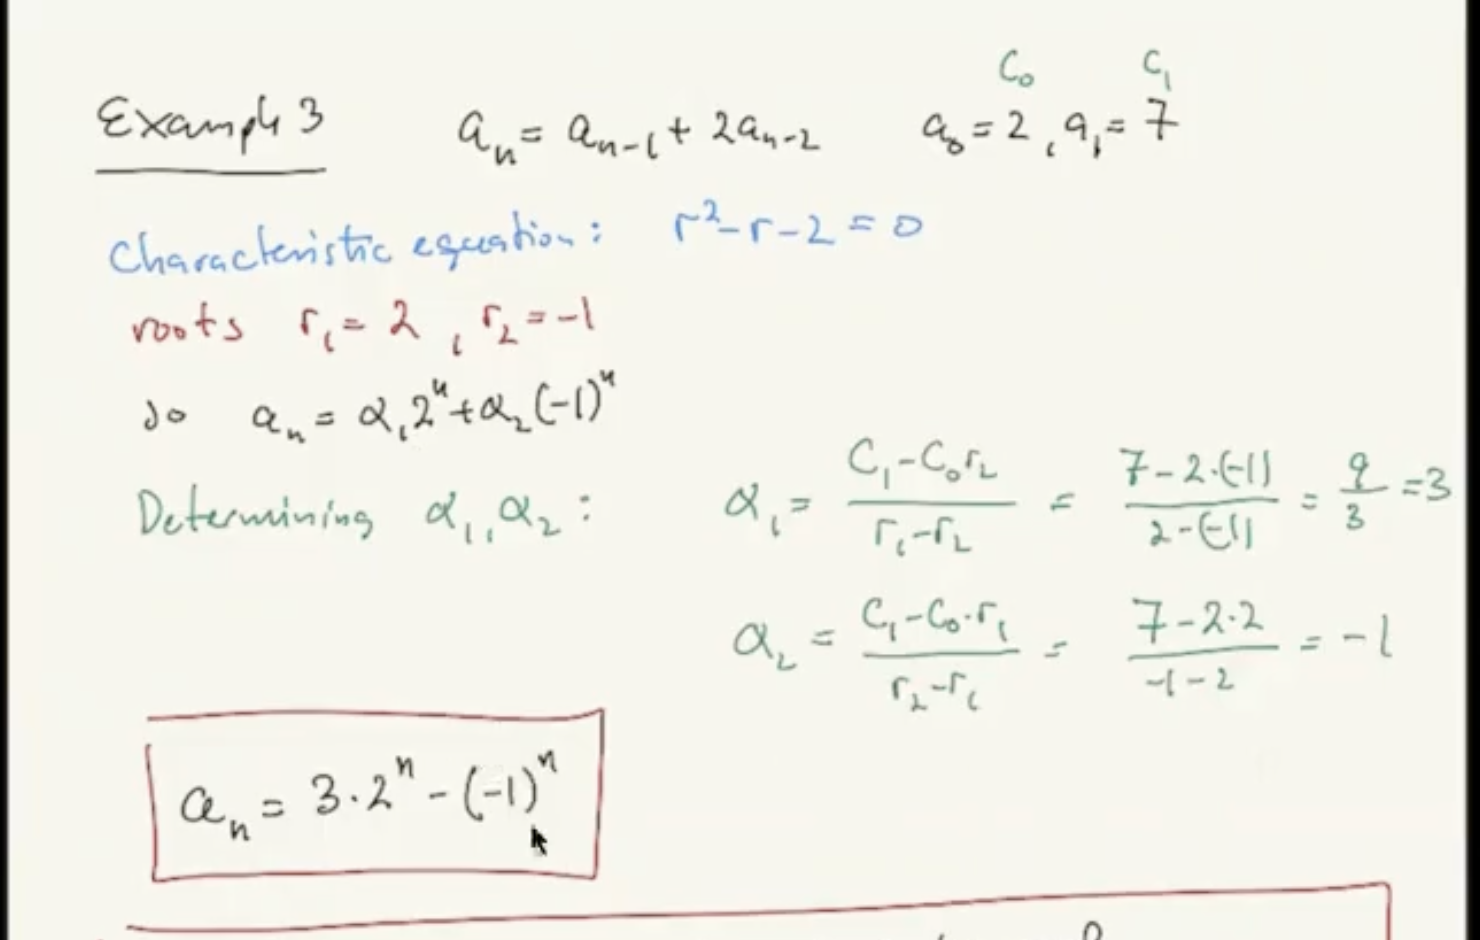 C₀ C₁
Example 3 aₙ = aₙ₋₁ + 2aₙ₋₂ a₀ = 2, a₁ = 7
Characteristic equation: r² - r - 2 = 0
roots r₁ = 2, r₂ = -1
so aₙ = α₁2ⁿ + α₂(-1)ⁿ
Determining α₁, α₂: α₁ = (C₁ - C₀r₂)/(r₁ - r₂) = (7 - 2·(-1))/(2 - (-1)) = 9/3 = 3
α₂ = (C₁ - C₀·r₁)/(r₂ - r₁) = (7 - 2·2)/(-1 - 2) = -1
aₙ = 3·2ⁿ - (-1)ⁿ